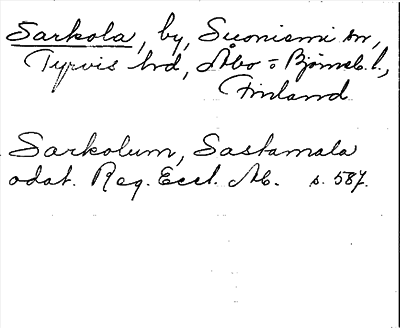 Sarkola, by, Suoniemi sn,
Tyrvis hd, Åbo o Björneb. l.,
Finland
Sarkolum, Sastamala
odat. Reg. Eccl. Ab. s. 587.